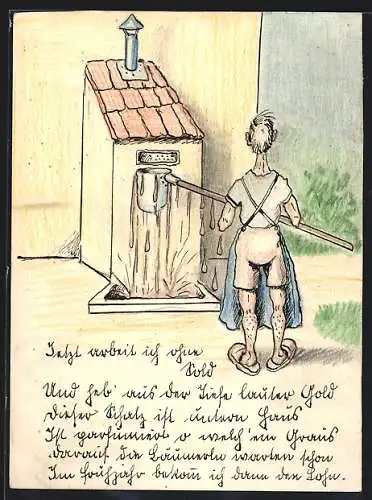 Jetzt arbeit ich ohne
Sold
Und heb' aus der Tiefe lauter Gold
Dieser Schatz ist unterm Haus
Ist parfümiert o welch' ein Graus
darauf die Bäumerln warten schon
Im Frühjahr bekom̅ ich dann den Lohn.